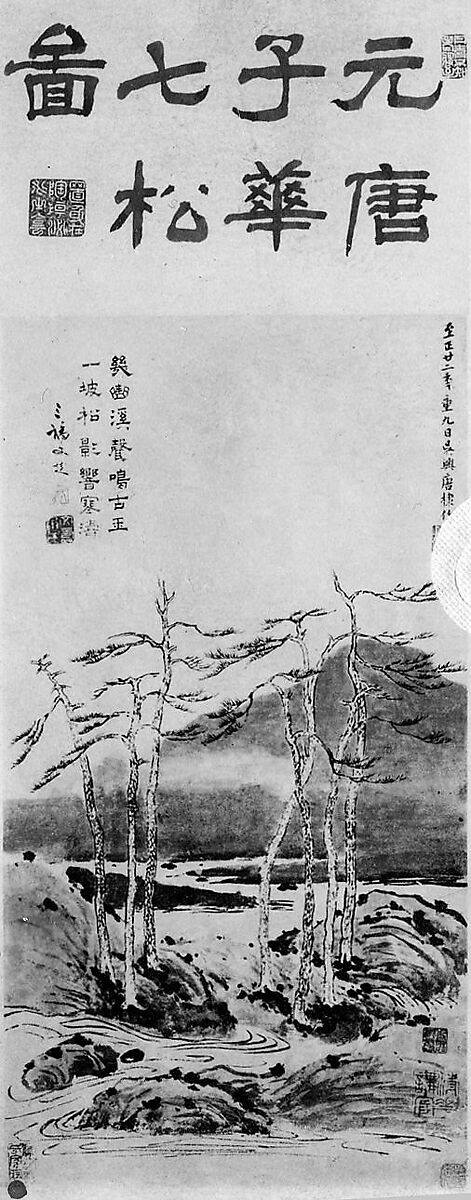 元唐
子華
七松
圖
至正廿二年重九日吳興唐棣作
幾曲溪聲鳴古玉
一坡松影響寒濤
三橋文彭